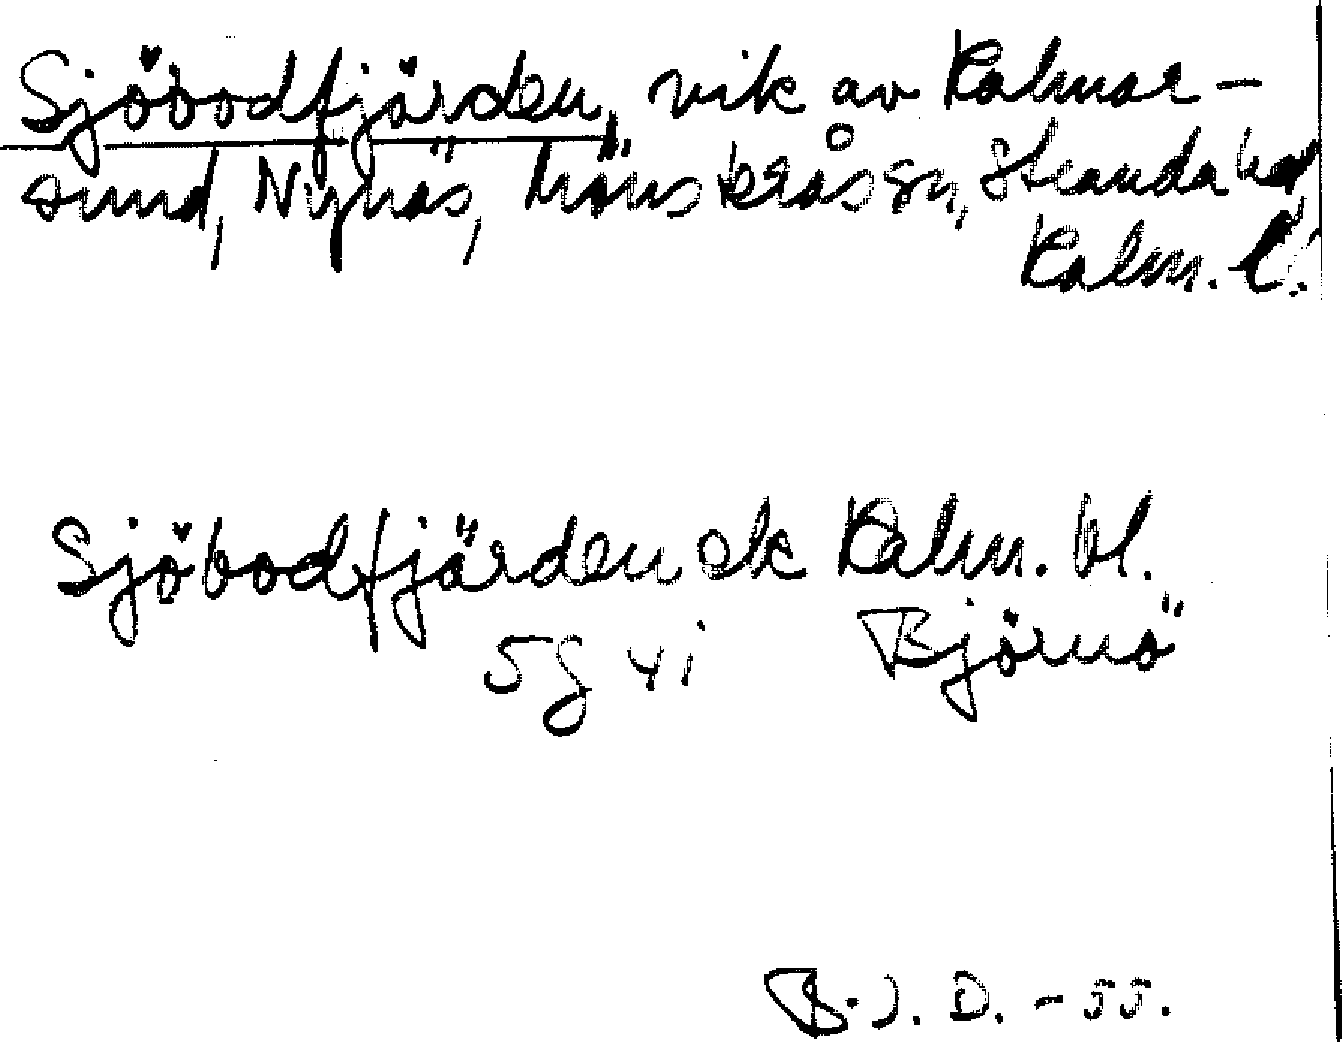 Sjöbodfjärden, vik av Kalmar-
sund, Nynäs, Mönsterås sn, Stranda hd,
Kalm. l.
Sjöbodfjärden ek Kalm. bl.
5g 4i Björnö
B.J.D. -55.